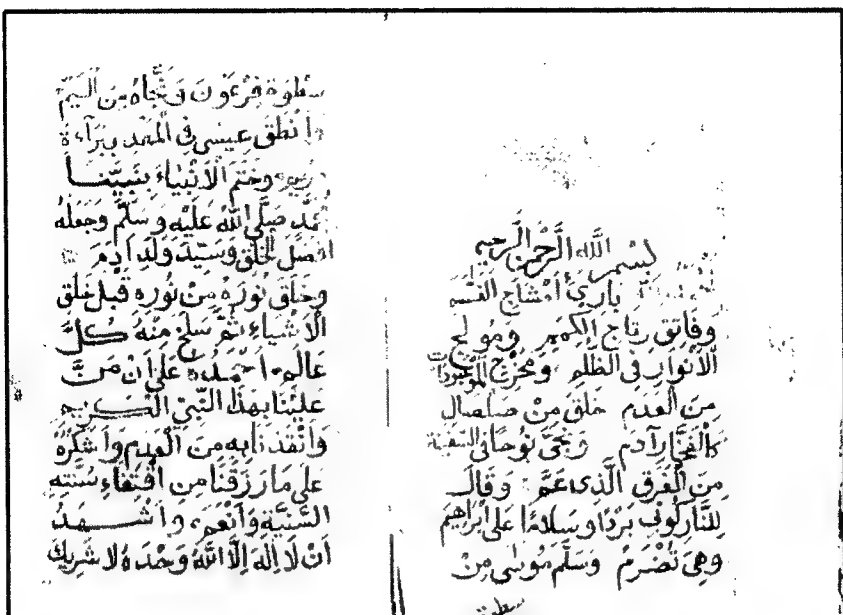 بِسْمِ اللَّهِ الرَّحْمٰنِ الرَّحِيمِ
بَارِئِ أَمْشَاجِ النَّسَمِ
وَفَاتِقِ رِتَاجِ الكِمَمِ وَمُولِجِ
الْأَنْوَارِ فِي الظُّلَمِ وَمُخْرِجِ الْمَوْجُودَاتِ
مِنَ الْعَدَمِ خَلَقَ مِنْ صَلْصَالٍ
كَالْفَخَّارِ آدَمَ وَنَجَّى نُوحًا فِي السَّفِينَةِ
مِنَ الْغَرَقِ الَّذِي عَمَّ وَقَالَ
لِلنَّارِ كُونِي بَرْدًا وَسَلَامًا عَلَى إِبْرَاهِيمَ
وَهِيَ تَضْرَمُ وَسَلَّمَ مُوسَى مِنْ
سطوة
سَطْوَةِ فِرْعَوْنَ وَنَجَّاهُ مِنَ الْيَمِّ
وَأَنْطَقَ عِيسَى فِي الْمَهْدِ بِبَرَاءَةِ
وَخَتَمَ الْأَنْبِيَاءَ بِنَبِيِّنَا
مُحَمَّدٍ صَلَّى اللَّهُ عَلَيْهِ وَسَلَّمَ وَجَعَلَهُ
أَفْضَلَ الْخَلْقِ وَسَيِّدَ وَلَدِ آدَمَ
وَخَلَقَ نُورَهُ مِنْ نُورِهِ قَبْلَ خَلْقِ
الْأَشْيَاءِ ثُمَّ سَلَخَ مِنْهُ كُلَّ
عَالَمٍ أَحْمَدُهُ عَلَى أَنْ مَنَّ
عَلَيْنَا بِهَذَا النَّبِيِّ الْكَرِيمِ
وَأَنْقَذَنَا بِهِ مِنَ الْعَدَمِ وَأَشْكُرُهُ
عَلَى مَا رَزَقَنَا مِنِ اقْتِفَاءِ سُنَّتِهِ
السَّنِيَّةِ وَأَنْعَمَ وَأَشْهَدُ
أَنْ لَا إِلَهَ إِلَّا اللَّهُ وَحْدَهُ لَا شَرِيكَ